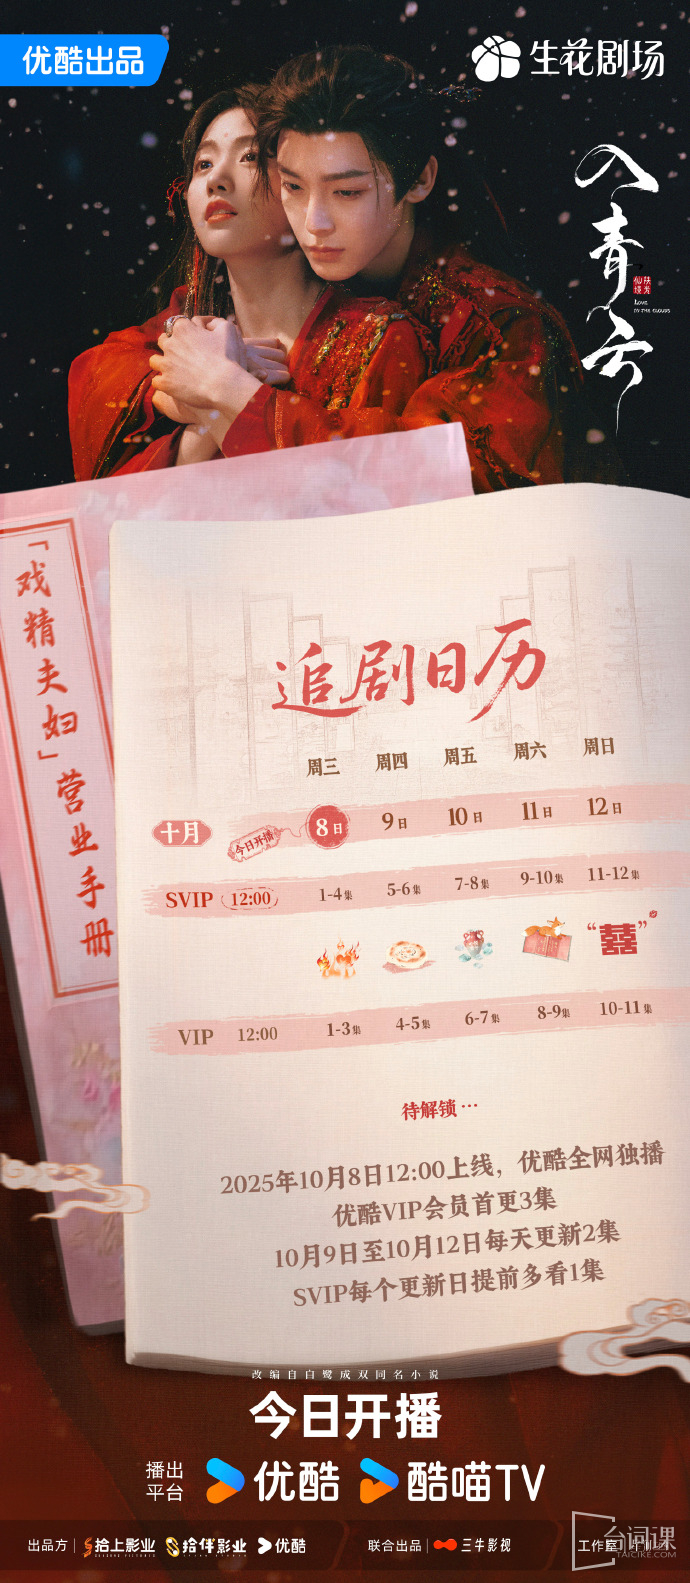 优酷出品
生花剧场
入青云
扶光仙境
LOVE
IN THE CLOUDS
「戏精夫妇」营业手册
追剧日历
周三 周四 周五 周六 周日
十月 今日开播 8日 9日 10日 11日 12日
SVIP 12:00 1-4集 5-6集 7-8集 9-10集 11-12集
“囍”
VIP 12:00 1-3集 4-5集 6-7集 8-9集 10-11集
待解锁…
2025年10月8日12:00上线，优酷全网独播
优酷VIP会员首更3集
10月9日至10月12日每天更新2集
SVIP每个更新日提前多看1集
改编自白鹭成双同名小说
今日开播
播出平台 优酷 酷喵TV
出品方 拾上影业 拾伴影业 优酷 联合出品 三牛影视 工作室
台词课
TAICIKE.COM